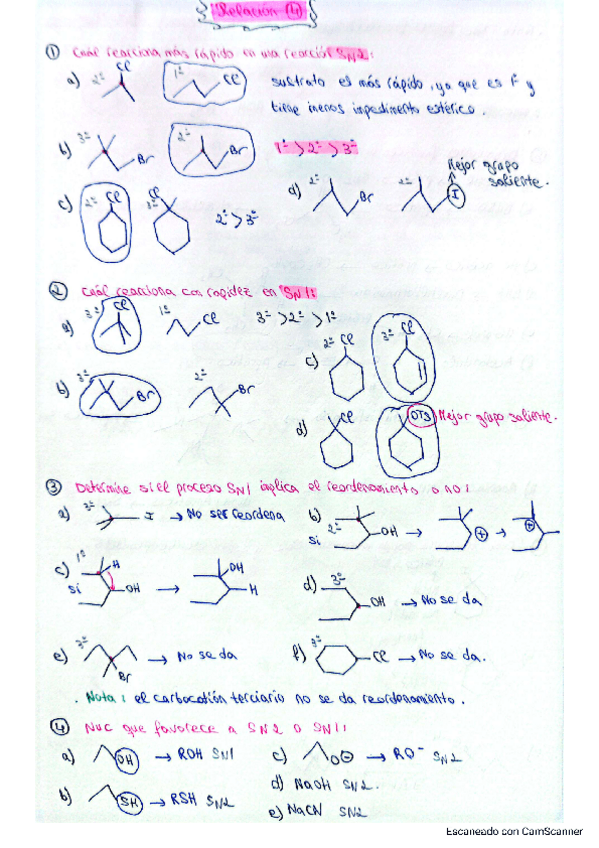 Relación 4
① Cuál reacciona más rápido en una reacción SN2:
a) 2º Cl 1º Cl sustrato es más rápido, ya que es 1º y
tiene menos impedimento estérico.
b) 3º Br 2º Br 1º > 2º > 3º
Mejor grupo
saliente.
c) 2º Cl 3º Cl 2º > 3º d) 2º Br 2º I
② Cuál reacciona con rapidez en SN1:
a) 3º Cl 1º Cl 3º > 2º > 1º
c) 2º Cl 3º Cl
b) 3º Br 2º Br
d) Cl OTs Mejor grupo saliente.
③ Determine si el proceso SN1 implica el reordenamiento o no:
a) I → No se reordena b) 2º si OH → ⊕ → ⊕
c) 1º si H OH → OH H d) 3º OH → No se da
e) 3º Br → No se da f) 3º Cl → No se da.
. Nota: el carbocatión terciario no se da reordenamiento.
④ Nuc que favorece a SN2 o SN1:
a) OH → ROH SN1 c) O⊖ → RO⁻ SN2
b) SH → RSH SN2 d) NaOH SN2.
e) NaCN SN2
Escaneado con CamScanner